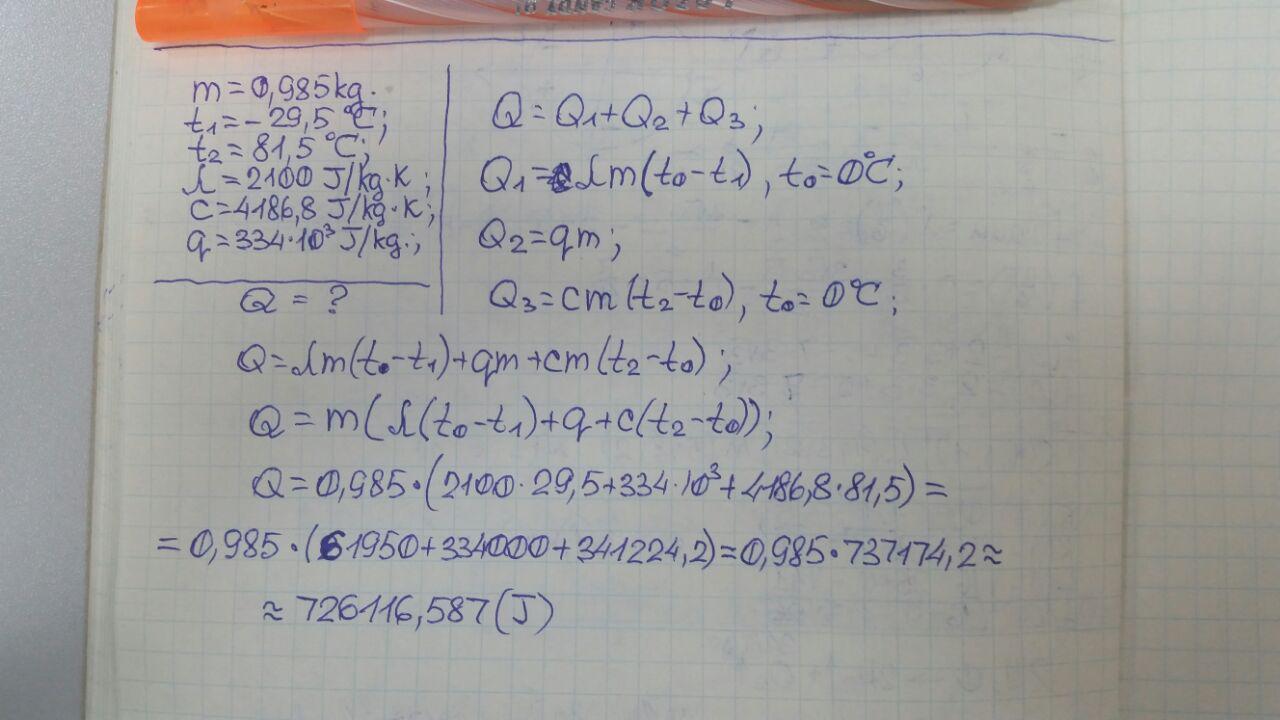 m=0,985kg.
t1=-29,5 °C;
t2=81,5 °C;
λ=2100 J/kg·K;
c=4186,8 J/kg·K;
q=334·10³ J/kg.;
Q = ?
Q=Q1+Q2+Q3;
Q1=λm(t0-t1), t0=0°C;
Q2=qm;
Q3=cm(t2-t0), t0=0°C;
Q=λm(t0-t1)+qm+cm(t2-t0);
Q=m(λ(t0-t1)+q+c(t2-t0));
Q=0,985·(2100·29,5+334·10³+4186,8·81,5)=
=0,985·(61950+334000+341224,2)=0,985·737174,2≈
≈726116,587(J)